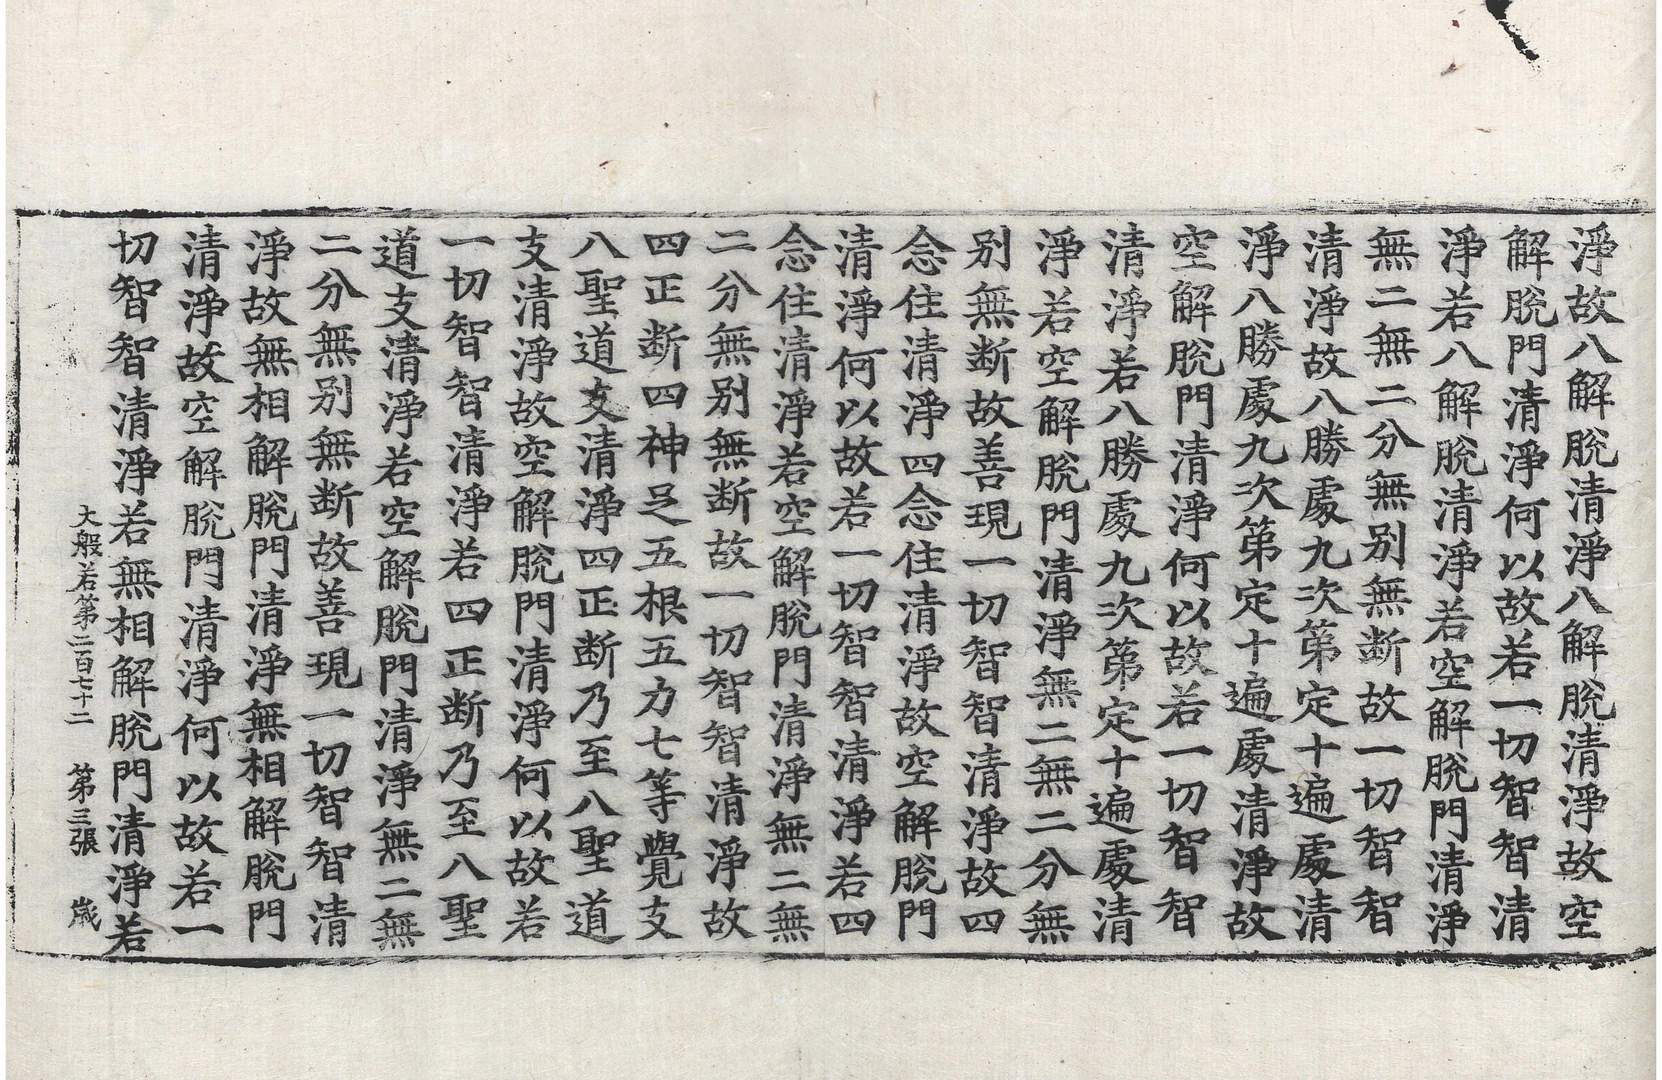 淨故八解脫清淨八解脫清淨故空
解脫門清淨何以故若一切智智清
淨若八解脫清淨若空解脫門清淨
無二無二分無別無断故一切智智
清淨故八勝處九次第定十遍處清
淨八勝處九次第定十遍處清淨故
空解脫門清淨何以故若一切智智
清淨若八勝處九次第定十遍處清
淨若空解脫門清淨無二無二分無
別無断故善現一切智智清淨故四
念住清淨四念住清淨故空解脫門
清淨何以故若一切智智清淨若四
念住清淨若空解脫門清淨無二無
二分無別無断故一切智智清淨故
四正断四神足五根五力七等覺支
八聖道支清淨四正断乃至八聖道
支清淨故空解脫門清淨何以故若
一切智智清淨若四正断乃至八聖
道支清淨若空解脫門清淨無二無
二分無別無断故善現一切智智清
淨故無相解脫門清淨無相解脫門
清淨故空解脫門清淨何以故若一
切智智清淨若無相解脫門清淨若
大般若第二百七十二 第三張 歲